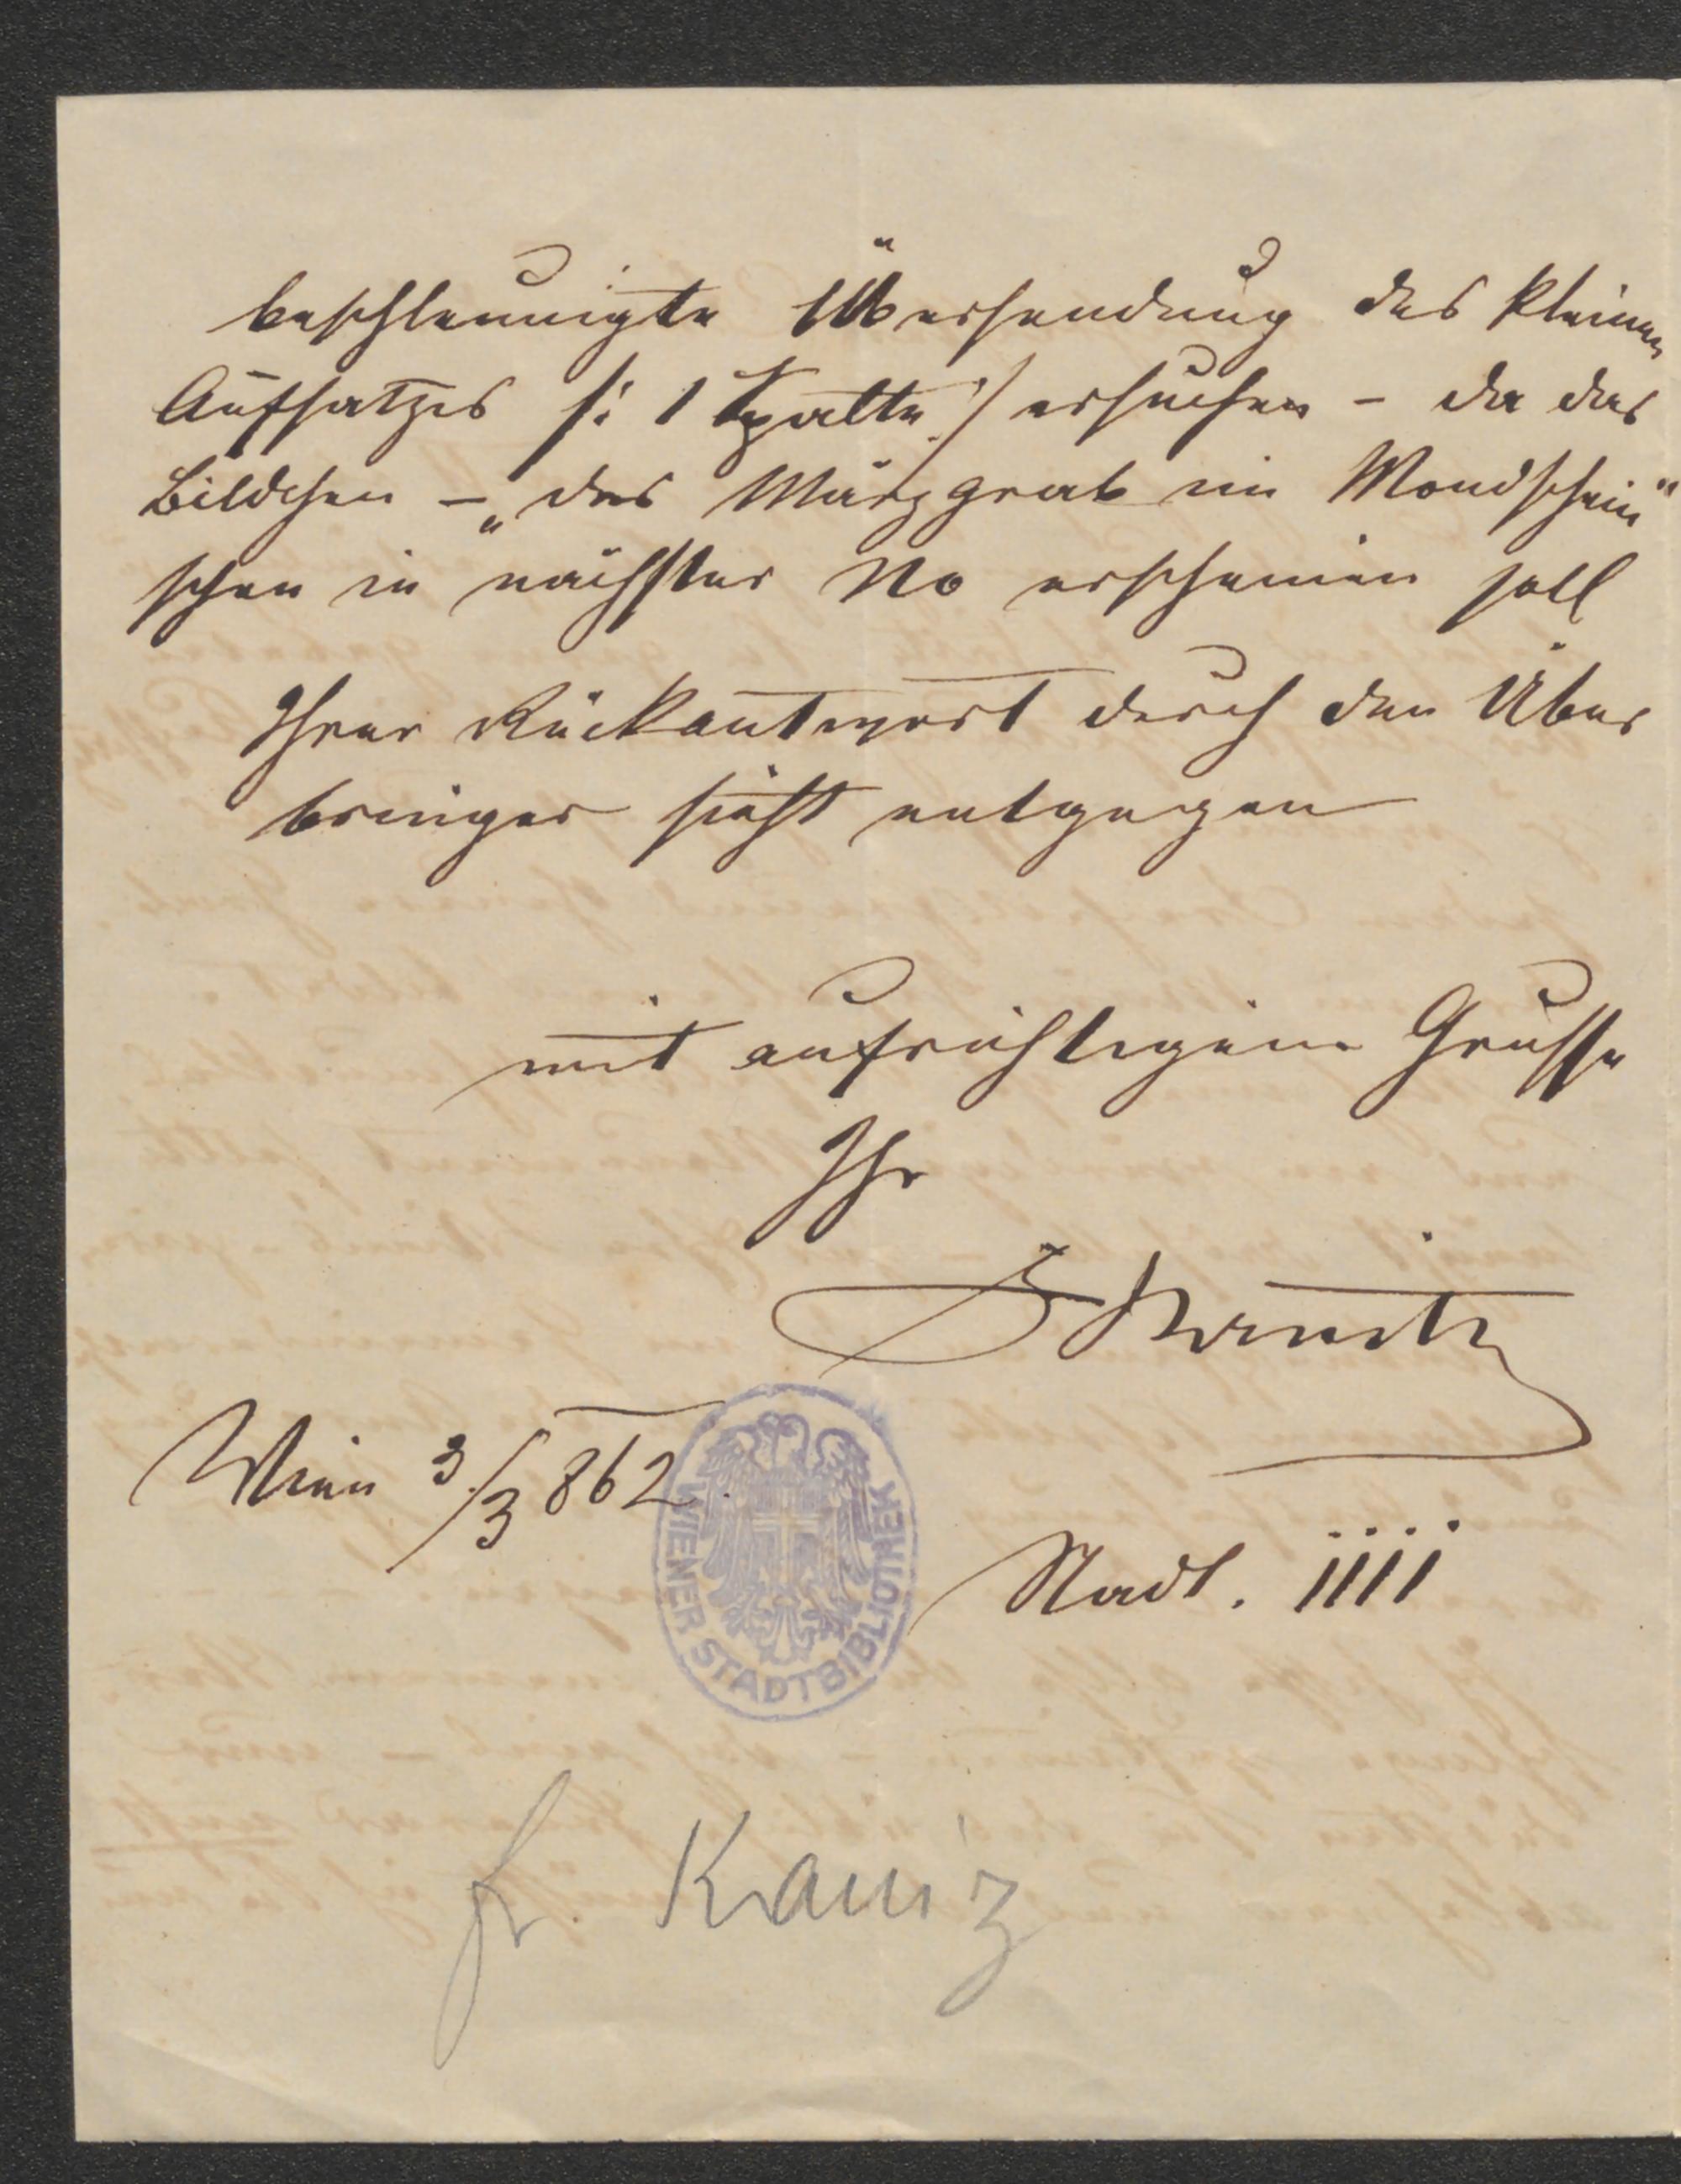 beschleunigte Übersendung des kleinen
Aufsatzes /: 1 Spalte :/ ersuchen – da das
Bildchen – „das Märzgrab im Mondschein“
schon in nächster No erscheinen soll
Ihrer Rückantwort durch den Über
bringer sieht entgegen
mit aufrichtigem Grusse
Ihr
F Kanitz
Wien 3./3 862.
Stadt. 1111
WIENER STADTBIBLIOTHEK
fr. Kaniz